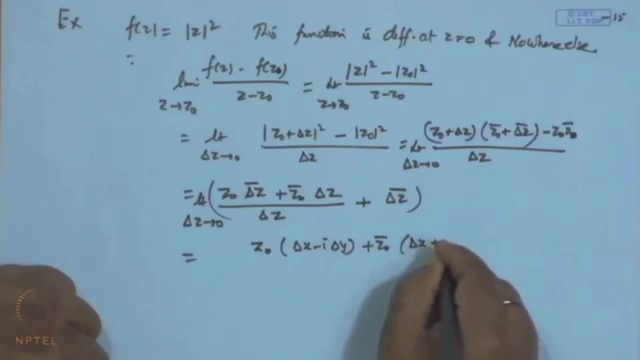 © CET
I.I.T. KGP
15
Ex f(z) = |z|² This function is diff. at z=0 & Nowhere else
∵ limi z→z₀ (f(z) - f(z₀))/(z-z₀) = lt z→z₀ (|z|² - |z₀|²)/(z-z₀)
= lt Δz→0 (|z₀+Δz|² - |z₀|²)/Δz = lt Δz→0 ((z₀+Δz)(z̄₀+Δ̅z̅) - z₀z̄₀)/Δz
= lt Δz→0 ((z₀ Δ̅z̅ + z̄₀ Δz)/Δz + Δ̅z̅)
= z₀ (Δx - iΔy) + z̄₀ (Δx +
NPTEL